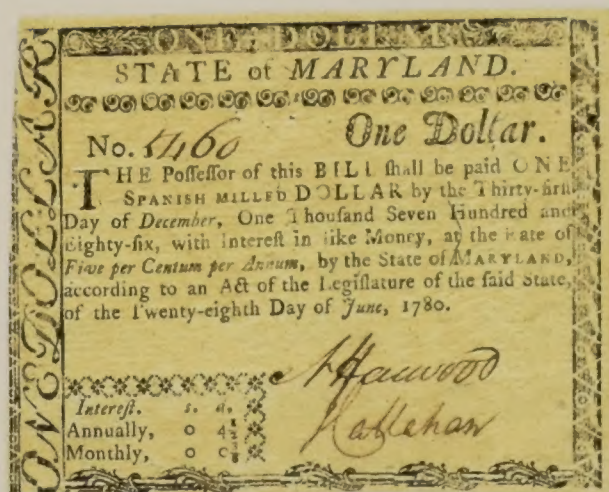 ONE DOLLAR
STATE of MARYLAND.
No. 5460 One Dollar.
THE Poſſeſſor of this BILL ſhall be paid ONE
SPANISH MILLED DOLLAR by the Thirty-firſt
Day of December, One Thouſand Seven Hundred and
Eighty-ſix, with Intereſt in like Money, at the Rate of
Five per Centum per Annum, by the State of MARYLAND,
according to an Act of the Legiſlature of the ſaid State,
of the Twenty-eighth Day of June, 1780.
N Harwood
J Callahan
Intereſt. s. d.
Annually, 0 4
Monthly, 0 0 3/8
ONE DOLLAR